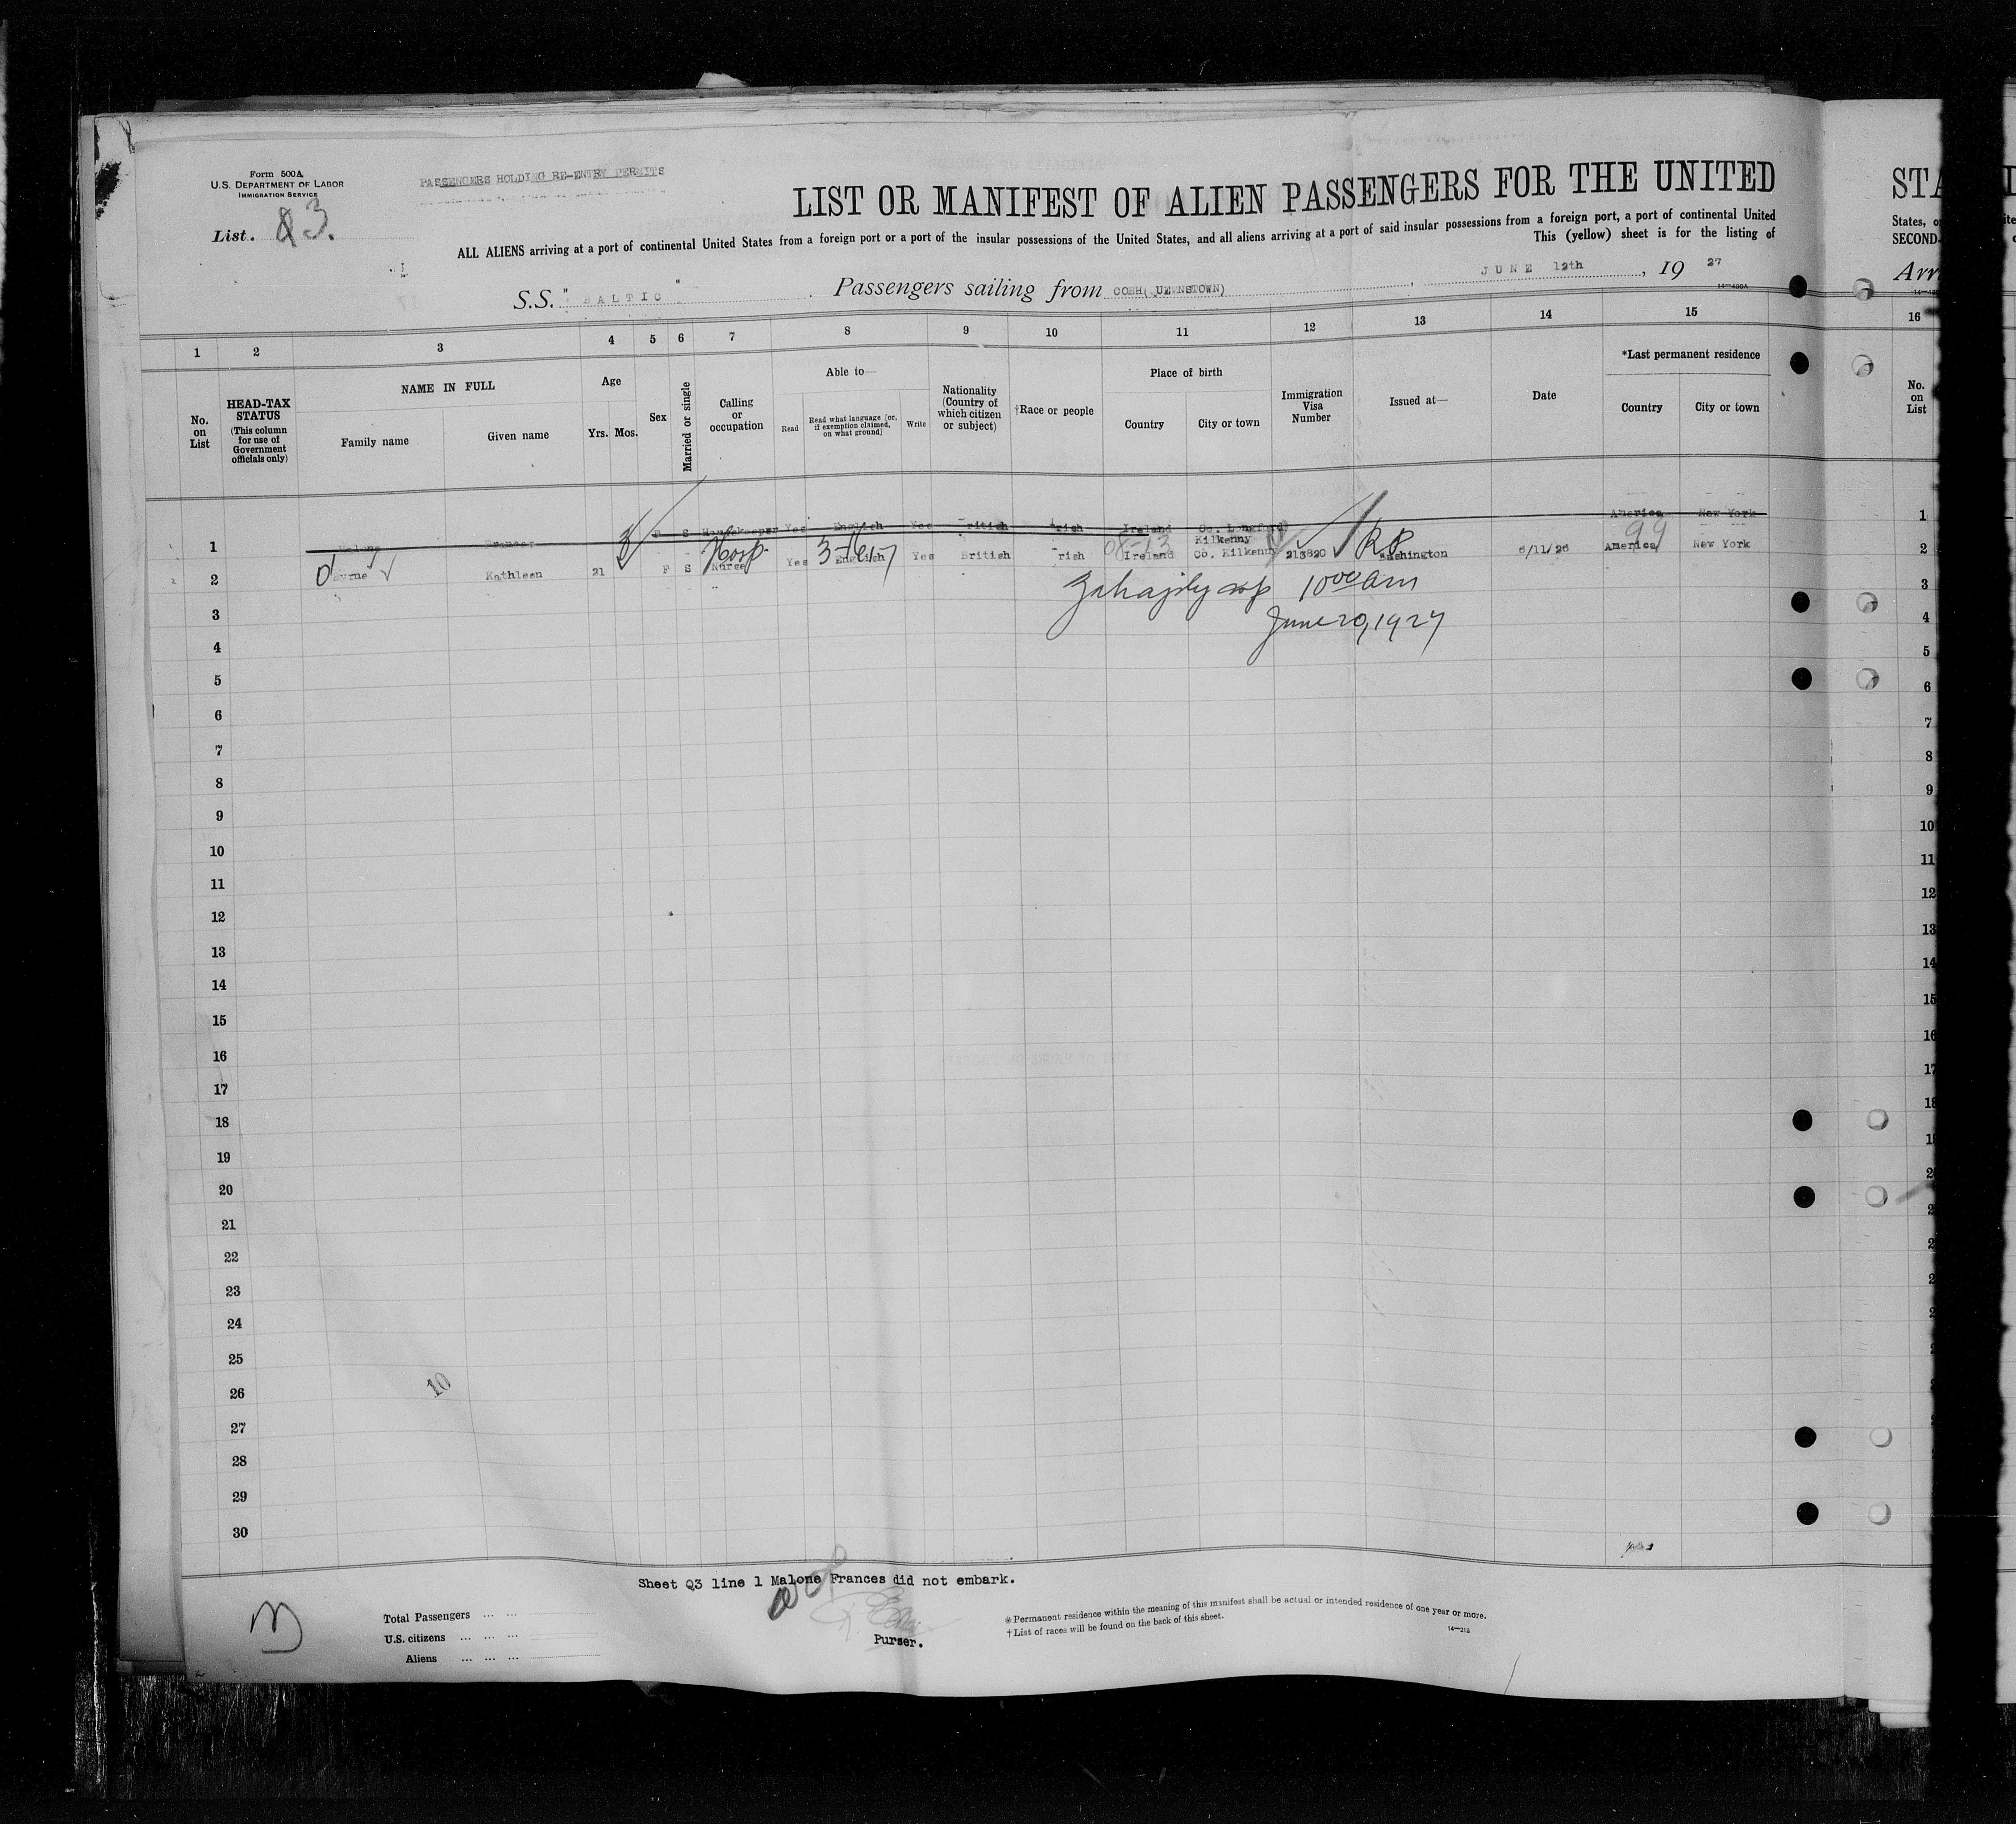 Form 500A
U.S. DEPARTMENT OF LABOR
IMMIGRATION SERVICE
PASSENGERS HOLDING RE-ENTRY PERMITS
List. Q3.
LIST OR MANIFEST OF ALIEN PASSENGERS FOR THE UNITED
ALL ALIENS arriving at a port of continental United States from a foreign port or a port of the insular possessions of the United States, and all aliens arriving at a port of said insular possessions from a foreign port, a port of continental United
This (yellow) sheet is for the listing of
S.S. "BALTIC" Passengers sailing from COBH(UEENSTOWN), JUNE 12th, 19 27
14—480A
1 2 3 4 5 6 7 8 9 10 11 12 13 14 15
No. on List
HEAD-TAX STATUS (This column for use of Government officials only)
NAME IN FULL
Family name
Given name
Age
Yrs. Mos.
Sex
Married or single
Calling or occupation
Able to—
Read
Read what language [or, if exemption claimed, on what ground]
Write
Nationality (Country of which citizen or subject)
†Race or people
Place of birth
Country
City or town
Immigration Visa Number
Issued at—
Date
*Last permanent residence
Country
City or town
1 Malone Frances S Housekeeper Yes English Yes ritish rish Ireland Co. Longford America New York
2 yrne Kathleen 21 F S Nurse Yes English Yes British rish Ireland Kilkenny Co. Kilkenny 213820 Washington 6/11/26 America New York
Hosp 08-13 RP 99
1000 am
June 20, 1927
3
4
5
6
7
8
9
10
11
12
13
14
15
16
17
18
19
20
21
22
23
24
25
26
27
28
29
30
10
Sheet Q3 line 1 Malone Frances did not embark.
Total Passengers ... ...
U.S. citizens ... ... ...
Aliens ... ... ...
Purser.
* Permanent residence within the meaning of this manifest shall be actual or intended residence of one year or more.
† List of races will be found on the back of this sheet.
14—218
STA
States, o
SECOND-
Arr
16
No. on List
1
2
3
4
5
6
7
8
9
10
11
12
13
14
15
16
17
18